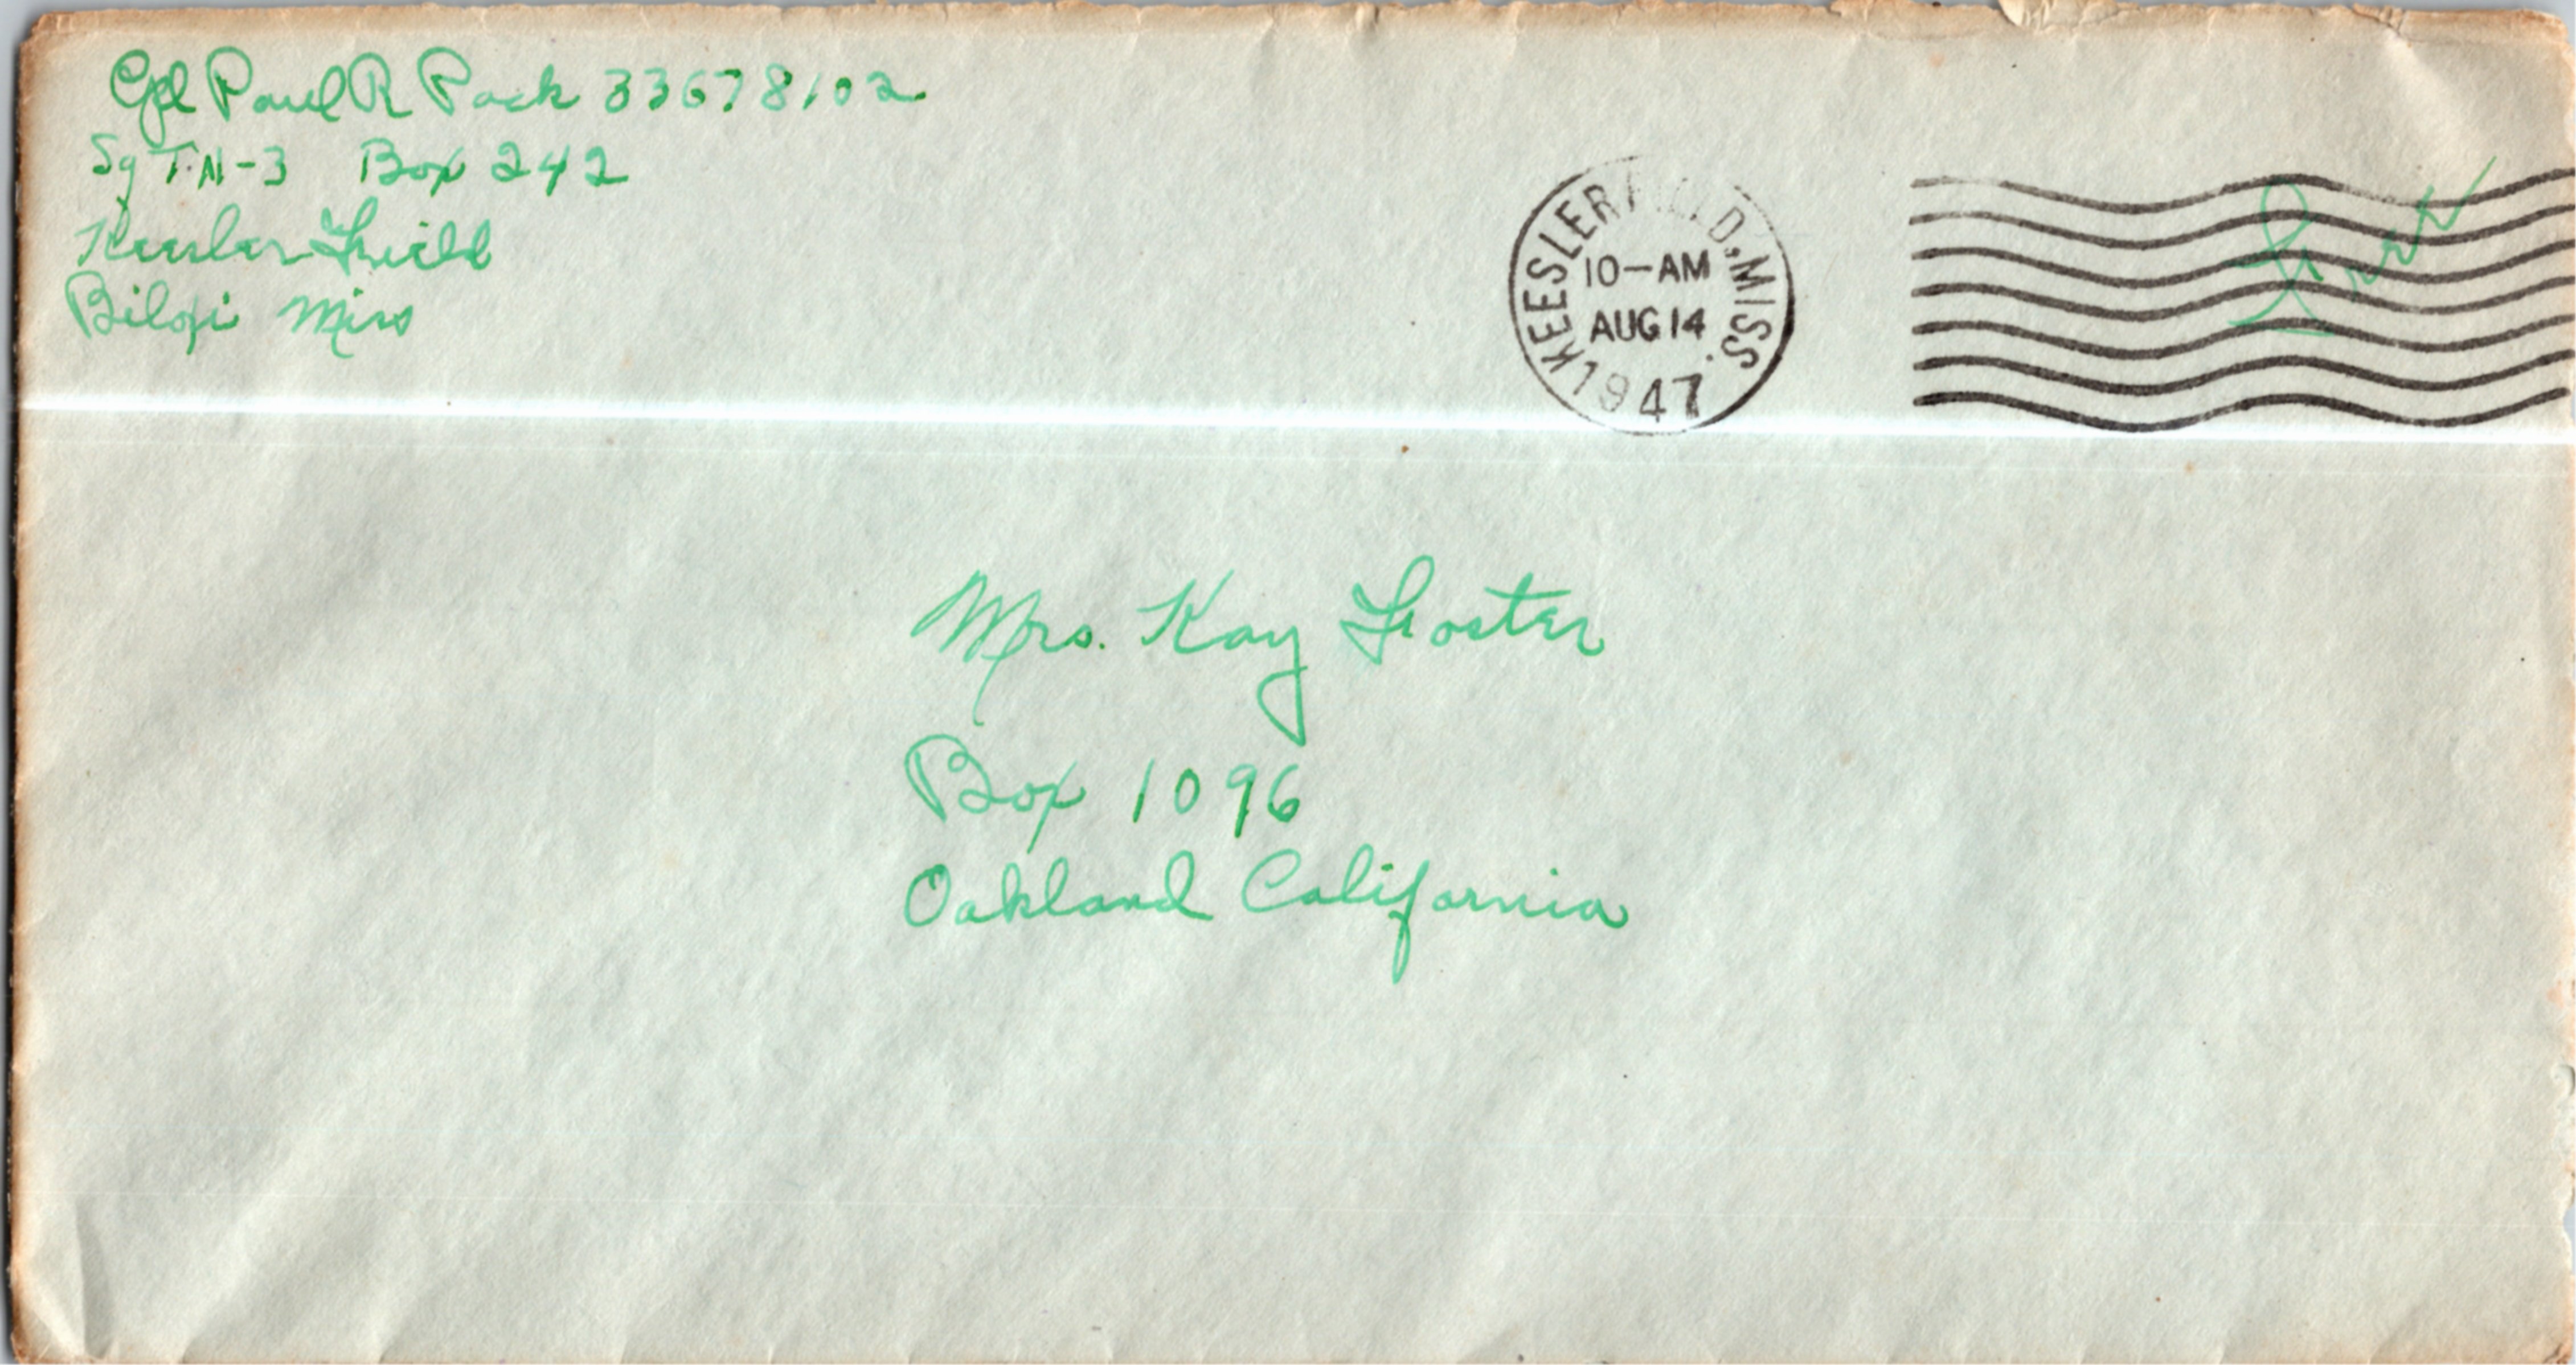 Cpl Paul R Pack 33678102
Sq T.N-3 Box 242
Keesler Field
Biloxi Miss
KEESLER FIELD, MISS.
10-AM
AUG 14
1947
Free
Mrs. Kay Foster
Box 1096
Oakland California